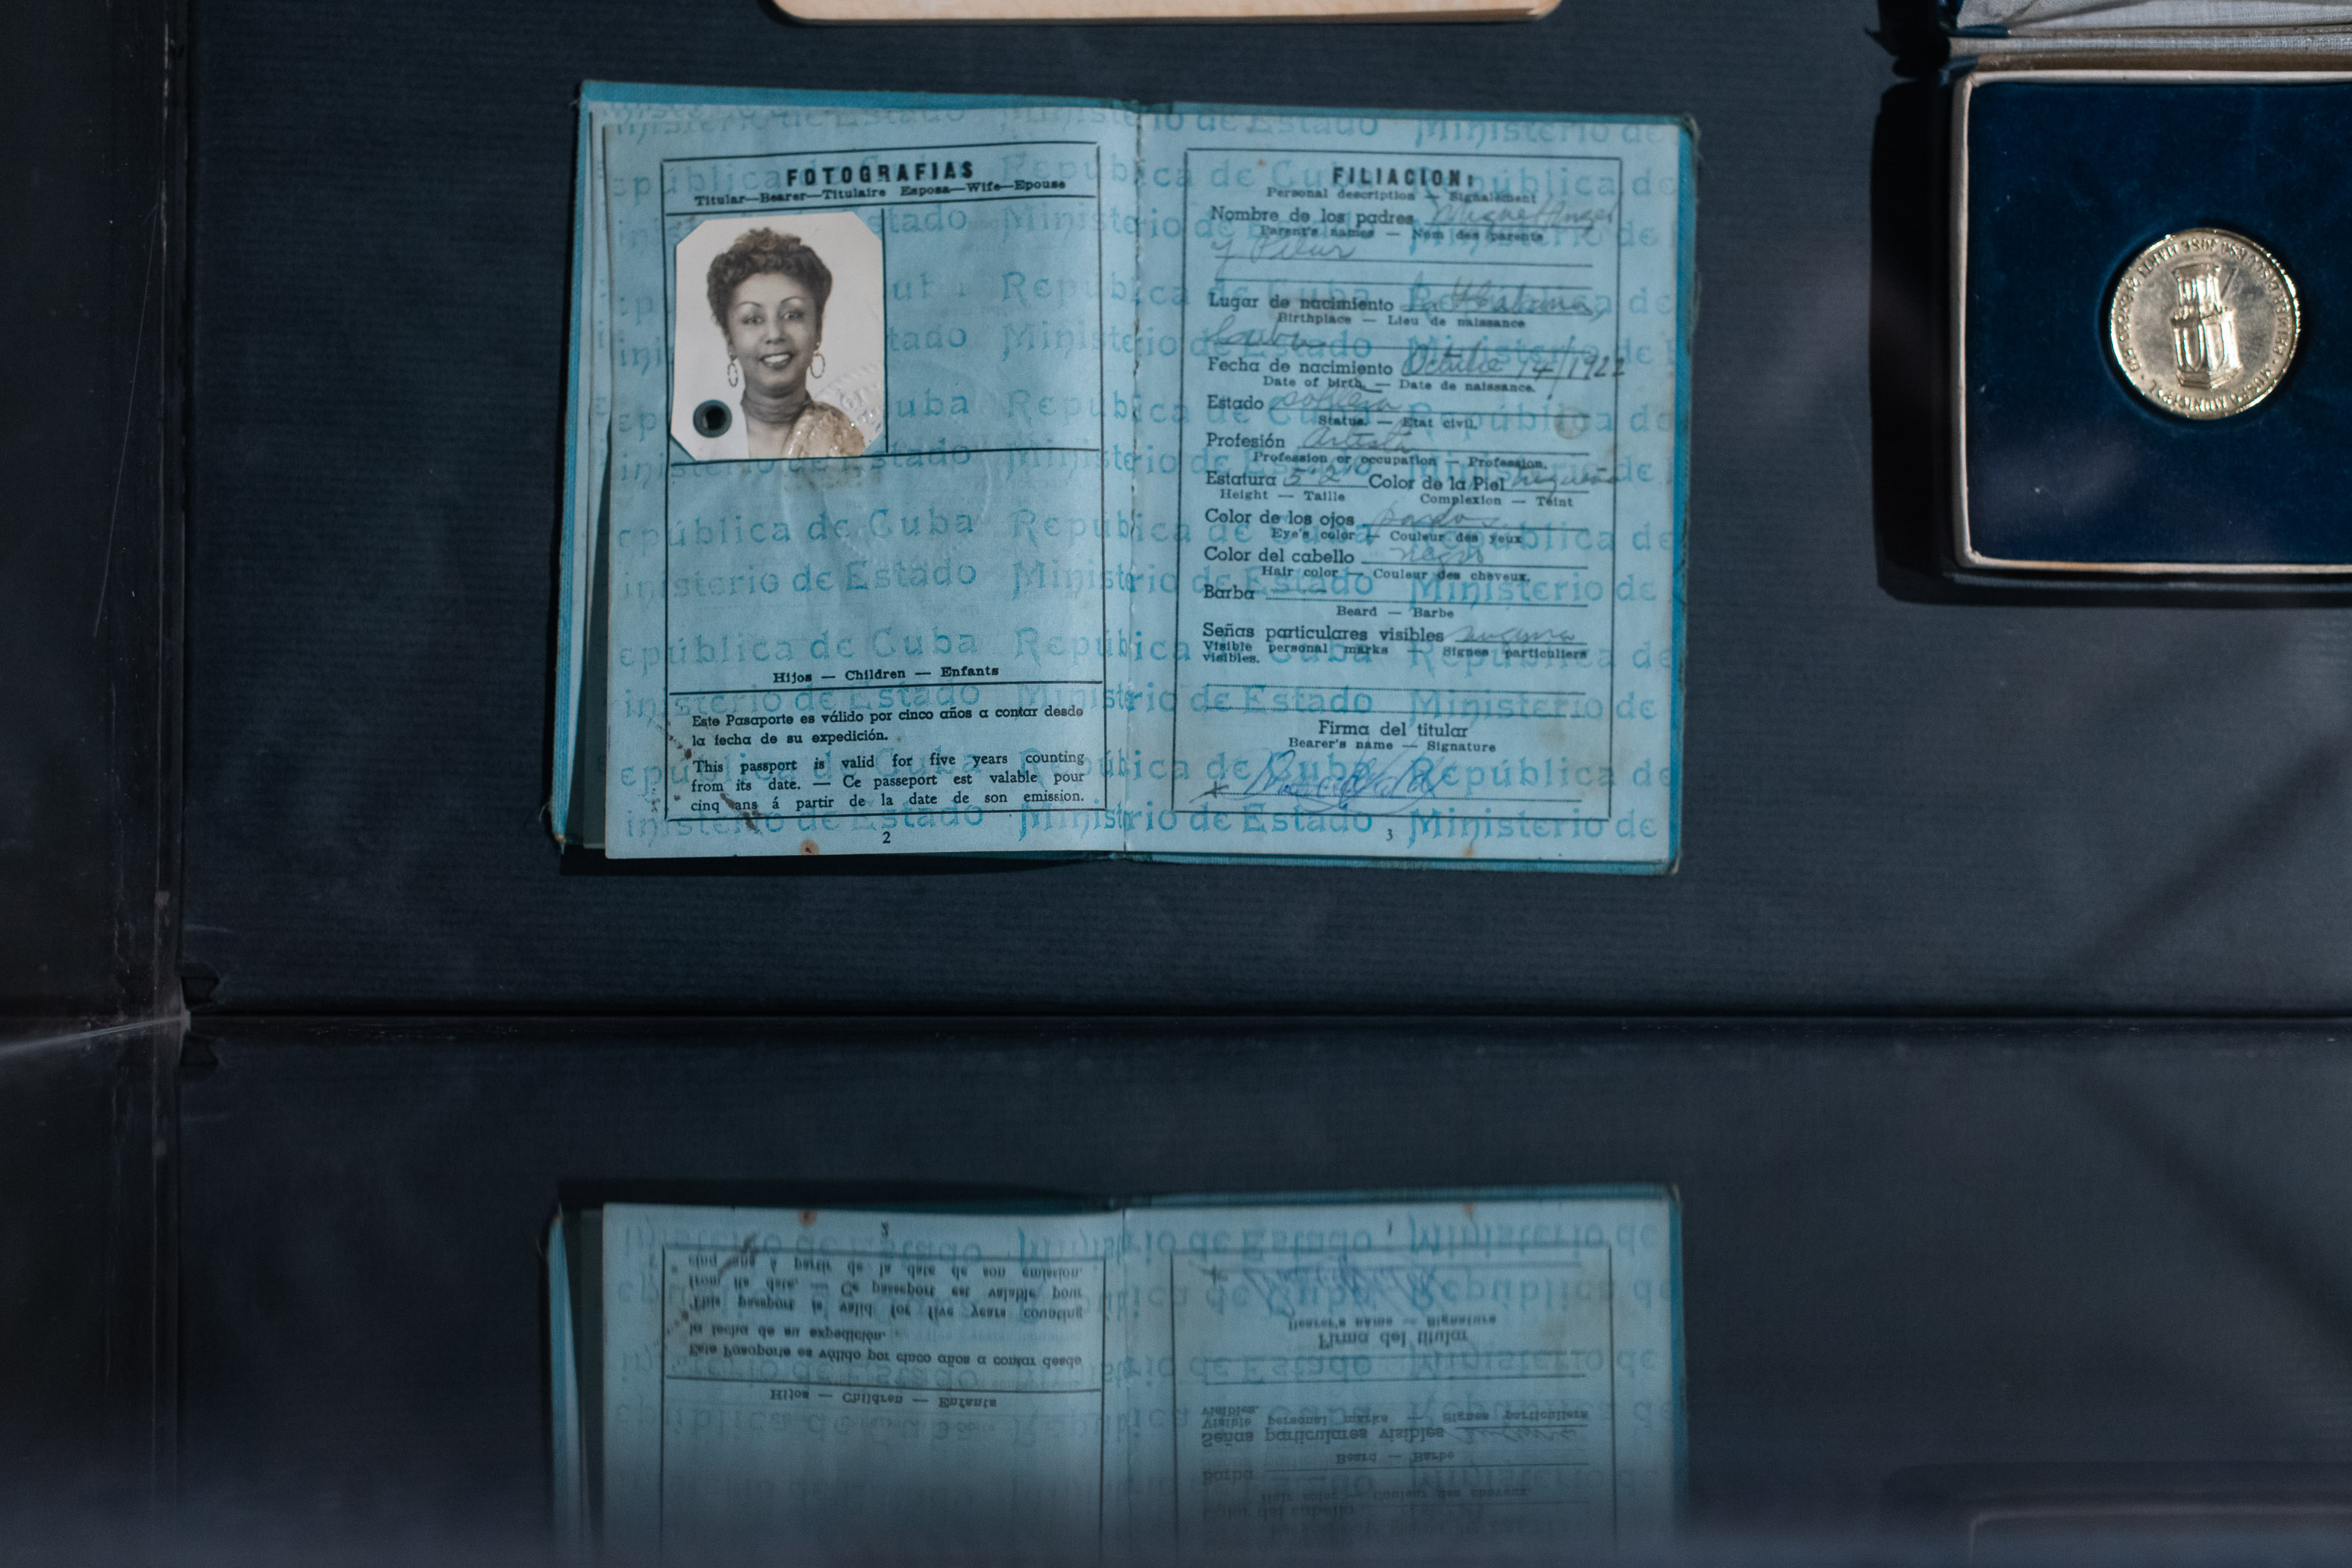 FOTOGRAFIAS
Titular—Bearer—Titulaire Esposa—Wife—Epouse
Hijos — Children — Enfants
Este Pasaporte es válido por cinco años a contar desde
la fecha de su expedición.
This passport is valid for five years counting
from its date. — Ce passeport est valable pour
cinq ans á partir de la date de son emission.
2
FILIACION:
Personal description — Signalement
Nombre de los padres Miguel Angel
Parent's names — Nom des parents
y Pilar
Lugar de nacimiento La Habana,
Birthplace — Lieu de naissance
Cuba
Fecha de nacimiento Octubre 14/1922
Date of birth. — Date de naissance.
Estado soltera
Status. — Etat civil.
Profesión Artista
Profession or occupation — Profession.
Estatura 5 2 Color de la Piel
Height — Taille Complexion — Teint
Color de los ojos pardos
Eye's color — Couleur des yeux
Color del cabello negro
Hair color — Couleur des cheveux.
Barba
Beard — Barbe
Señas particulares visibles ninguna
Visible personal marks — Signes particuliers
visibles.
Firma del titular
Bearer's name — Signature
3
República de Cuba
Ministerio de Estado